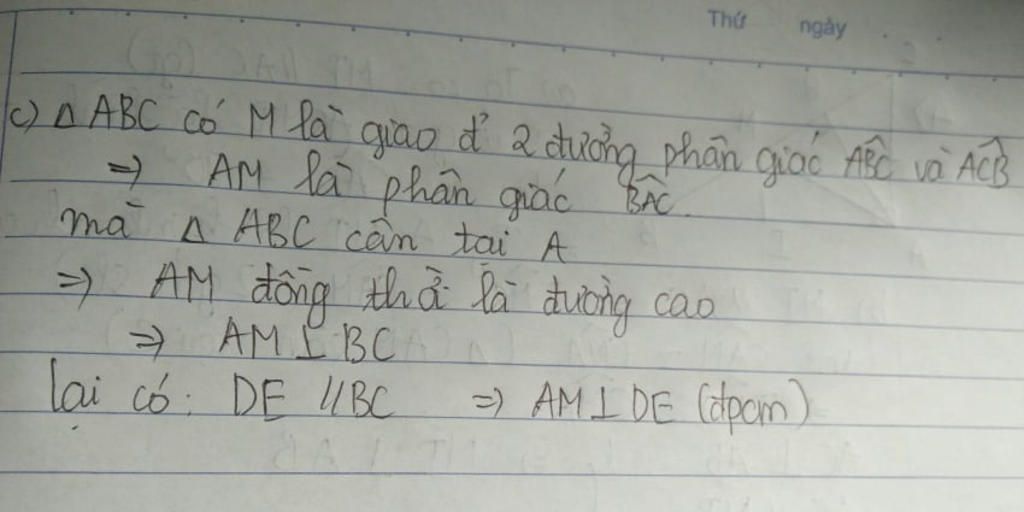 Thứ ngày
c) Δ ABC có M là giao đ' 2 đường phân giác \(\widehat{ABC}\) và \(\widehat{ACB}\)
=> AM là phân giác \(\widehat{BAC}\).
mà Δ ABC cân tại A
=> AM đồng thời là đường cao
=> AM ⊥ BC
lại có: DE // BC => AM ⊥ DE (đpcm)